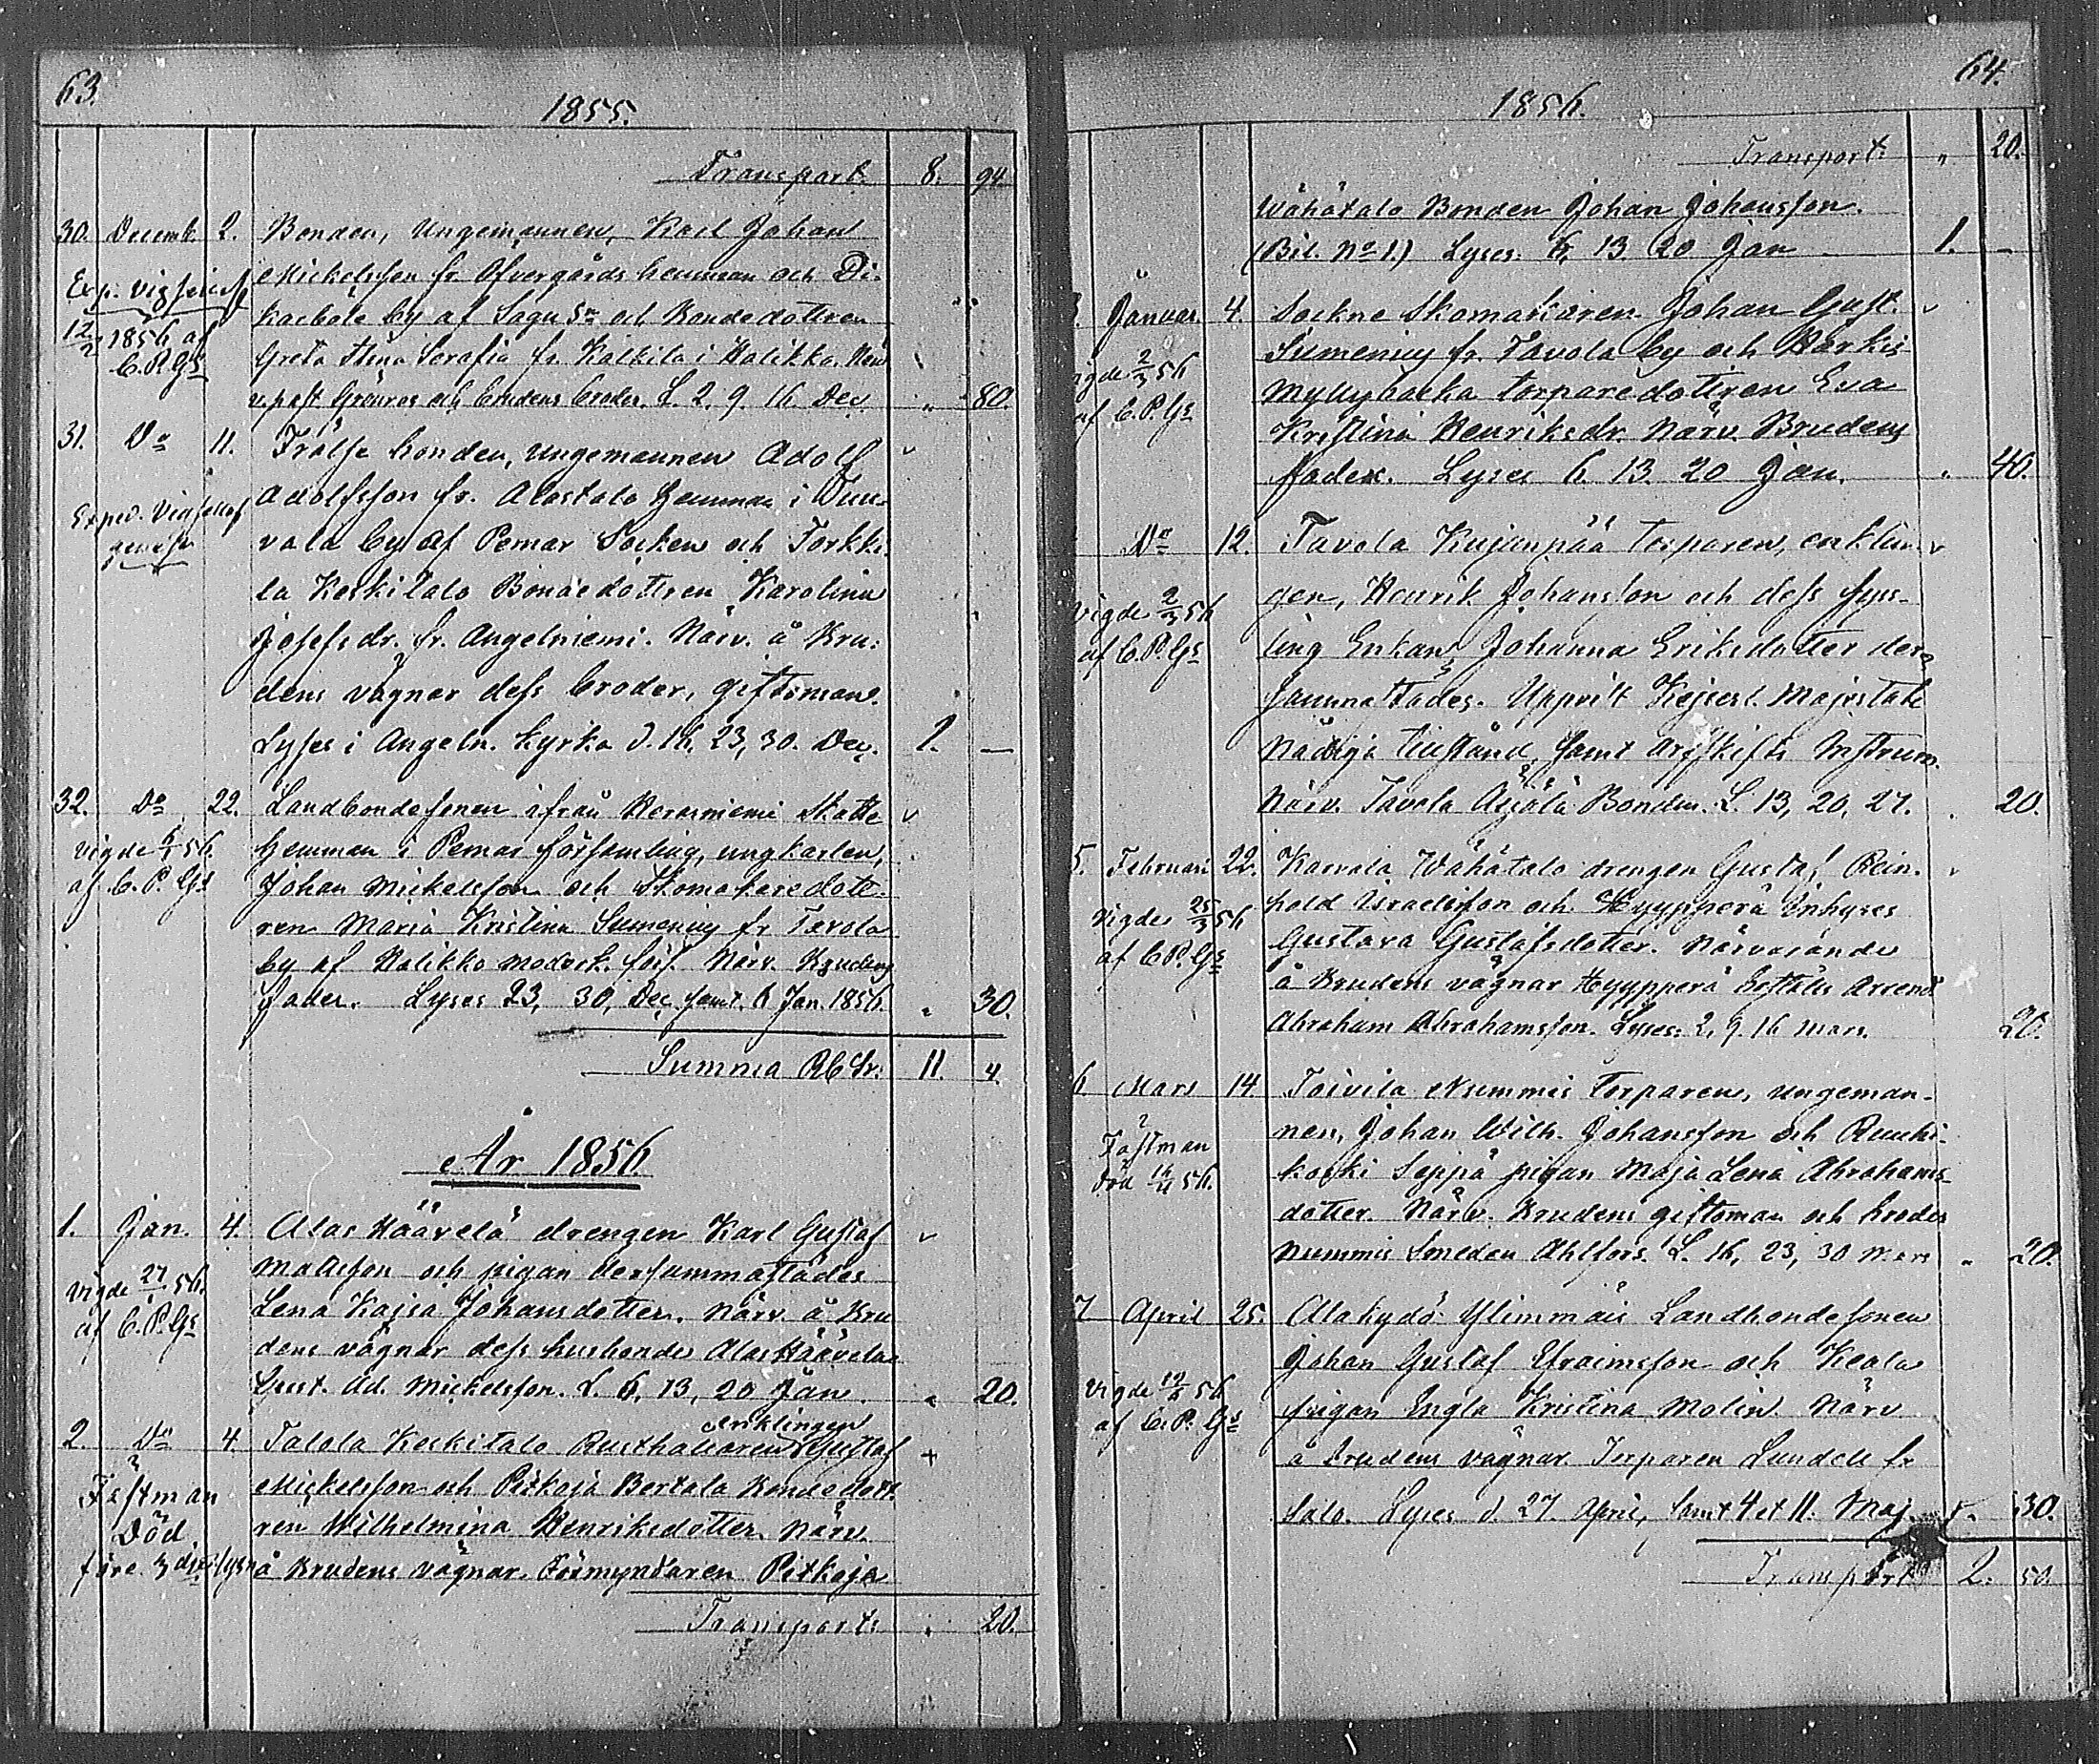 63.
1855.
Transport. 8. 94.
30. Decemb. 2. Bonden, Ungemannen, Karl Johan
Mickelsson fr. Ofvergårds hemman och Di-
Exp. vigselatt
karböle by af Sagu Sn och Bondedottren
12/2 1856 af
Greta Stina Serafia fr. Kaikila i Halikko. När
C. P. Gs
v. past. Grönros och brudens broder. L. 2. 9. 16 Dec. „ 80.
31. Do 11. Frälse bonden, Ungemannen Adolf
Adolfsson fr. Alastalo hemman i
Exped. Vigselatt
vala by af Pemar Socken och Torkki-
la Keskitalo Bondedottren Karolina
Josefsdr. fr. Angelniemi. Närv. å Bru-
dens vägnar dess broder, giftoman.
Lyses i Angeln. Kyrka d. 16, 23, 30. Dec. 1. —
32. Do 22. Landbondesonen ifrån Kerasniemi Skatte
vigde 6/1 56.
hemman i Pemar församling, ungkarlen,
af C. P. Gs
Johan Mickelsson och Skomakaredott-
ren Maria Kristina Sumenius fr Tavola
by af Halikko moderk. förs. Närv. Brudens
fader. Lyses 23, 30, Dec samt 6 Jan. 1856. „ 30.
Summa Rb Sr: 11. 4.
År 1856
1. Jan. 4. Alas Häävelä drengen Karl Gustaf
vigde 27/1 56.
Mattsson och pigan dersammastädes
af C. P. Gs
Lena Kajsa Johansdotter. Närv. å Bru
dens vägnar dess husbonde Alas Häävelä
Gust. Ad. Mickelsson. L. 6, 13, 20 Jan „ 20.
enklingen
2. Do 4 Talola Keskitalo Rusthållaren Gustaf +
Mickelsson och Pitkoja Bertala Bondedott-
Fästman
ren Wilhelmina Henriksdotter. Närv.
Död
å Brudens vägnar. Förmyndaren Pitkoja
före 3dje lysn
Transport: „ 20.
64.
1856.
Transport: „ 20.
Wähätalo Bonden Johan Johansson.
(Bil. No 1.) Lyses. 6, 13. 20 Jan 1. —
3. Januar. 4. Sockne Skomakaren Johan Gust.
Sumenius fr. Tavola by och
vigde 2/3 56
Myllybacka torparedottren Eva
af C. P. Gs
Kristina Henriksdr. Närv. Brudens
fader. Lyses 6. 13. 20 Jan. „ 40.
Do 12. Tavola Kujanpää torparen, enklin-
gen, Henrik Johansson och dess syss-
vigde 2/3 56
ling Enkan Johanna Eriksdotter der-
af C. P. Gs
sammastädes. Uppvist Kejserl. Majestäts
Nådiga tillstånd, samt arfskifts Instrum.
Närv. Tavola Äijälä Bonden. L. 13, 20, 27. „ 20.
5. Februari 22. Karvala Wähätalo drengen Gustaf Rein-
hold Israelsson och Hyypperä Inhyses
Vigdes 25/3 56
Gustava Gustafsdotter. Närvarande
af C. P. Gs
å Brudens vägnar Hyypperä
Abraham Abrahamsson. Lyses: 2, 9. 16 Mars. 20.
6. Mars 14 Toivila Nummis torparen, ungeman-
nen, Johan Wilh. Johansson och Ruuhi-
Fästman
koski Seppä pigan Maja Lena Abrahams-
död 56.
dotter. Närv. Brudens giftoman och broder
Nummis Smeden Ahlfors. L. 16, 23, 30 Mars „ 20.
7 April 25. Alakydö Ylimmäis Landbondesonen
Johan Gustaf Efraimsson och Keala
vigde 19/5 56
pigan Engla Kristina Molin. Närv.
af C. P. Gs
å brudens vägnar Torparen Lundell fr
Salo. Lyses d. 27 April, samt 4 et 11. Maj. 30.
Transport 2. 50.